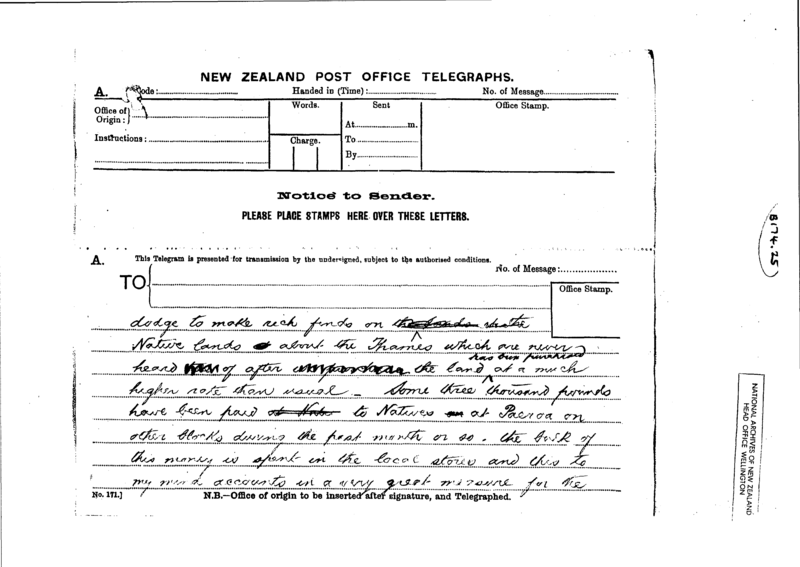 NEW ZEALAND POST OFFICE TELEGRAPHS.
A. Code :
Handed in (Time) :
No. of Message
Office of Origin :
Words.
Sent
Office Stamp.
At m.
Instructions :
Charge.
To
By
Notice to Sender.
PLEASE PLACE STAMPS HERE OVER THESE LETTERS.
A. This Telegram is presented for transmission by the undersigned, subject to the authorised conditions.
No. of Message :
TO
Office Stamp.
dodge to make rich finds on
Native lands about the Thames which are never
heard of after the land has been purchased at a much
higher rate than usual _ Some three thousand pounds
have been paid to Natives at Paeroa on
other blocks during the past month or so . The bulk of
this money is spent in the local stores and this to
my mind accounts in a very great measure for the
No. 171.]
N.B.—Office of origin to be inserted after signature, and Telegraphed.
B174.25
NATIONAL ARCHIVES OF NEW ZEALAND
HEAD OFFICE WELLINGTON